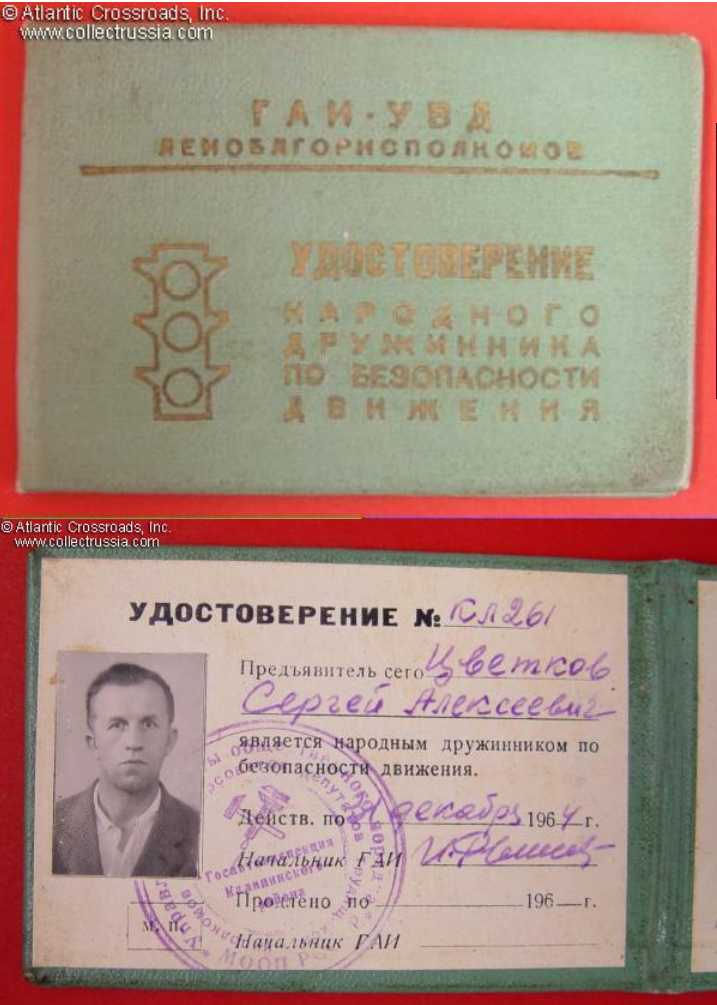 © Atlantic Crossroads, Inc.
www.collectrussia.com
ГАИ·УВД
ЛЕНОБЛГОРИСПОЛКОМОВ
УДОСТОВЕРЕНИЕ
НАРОДНОГО
ДРУЖИННИКА
ПО БЕЗОПАСНОСТИ
ДВИЖЕНИЯ
© Atlantic Crossroads, Inc.
www.collectrussia.com
УДОСТОВЕРЕНИЕ № КЛ261
Предъявитель сего Цветков
Сергей Алексеевич
является народным дружинником по
безопасности движения.
Действ. по 31 декабря 1964 г.
Начальник ГАИ
Продлено по 196 г.
м. п.
Начальник ГАИ
Госавтоинспекция
Калининского
района